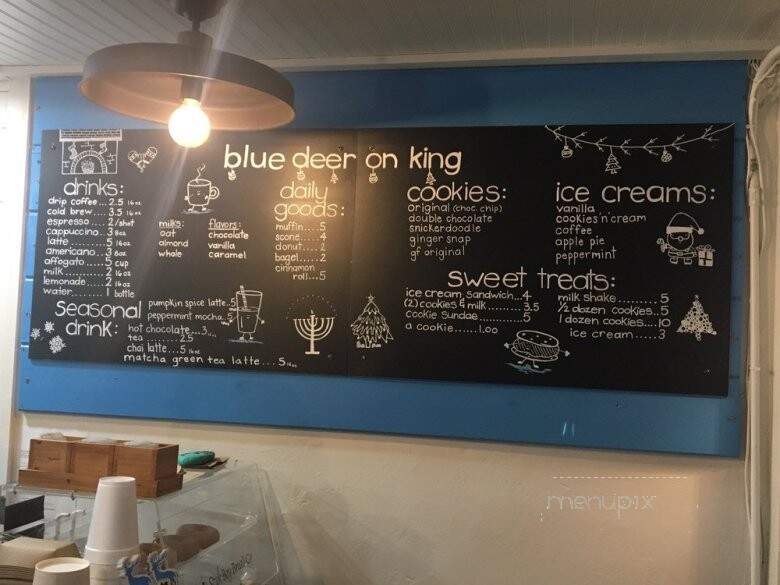 blue deer on king
drinks:
drip coffee...2.5 16oz
cold brew....3.5 16oz
espresso.....2/shot
cappuccino..3 8oz
latte..........5 16oz
americano...3 8oz
affogato.....5 cup
milk...........2 16oz
lemonade...2 16oz
water.........1 bottle
milks:
oat
almond
whole
flavors:
chocolate
vanilla
caramel
daily
goods:
muffin....5
scone.....4
donut.....2
bagel.....2
cinnamon
roll...5
cookies:
original (choc. chip)
double chocolate
snickerdoodle
ginger snap
gf original
ice creams:
vanilla
cookies'n'cream
coffee
apple pie
peppermint
Seasonal
drink:
pumpkin spice latte..5
peppermint mocha..5
hot chocolate...3
tea..........2.5
chai latte...5 16oz
matcha green tea latte...5 16oz
sweet treats:
ice cream sandwich...4
(2) cookies & milk.......3.5
cookie sundae..........5
a cookie......1.00
milk shake.........5
1/2 dozen cookies...5
1 dozen cookies...10
ice cream......3
menupix